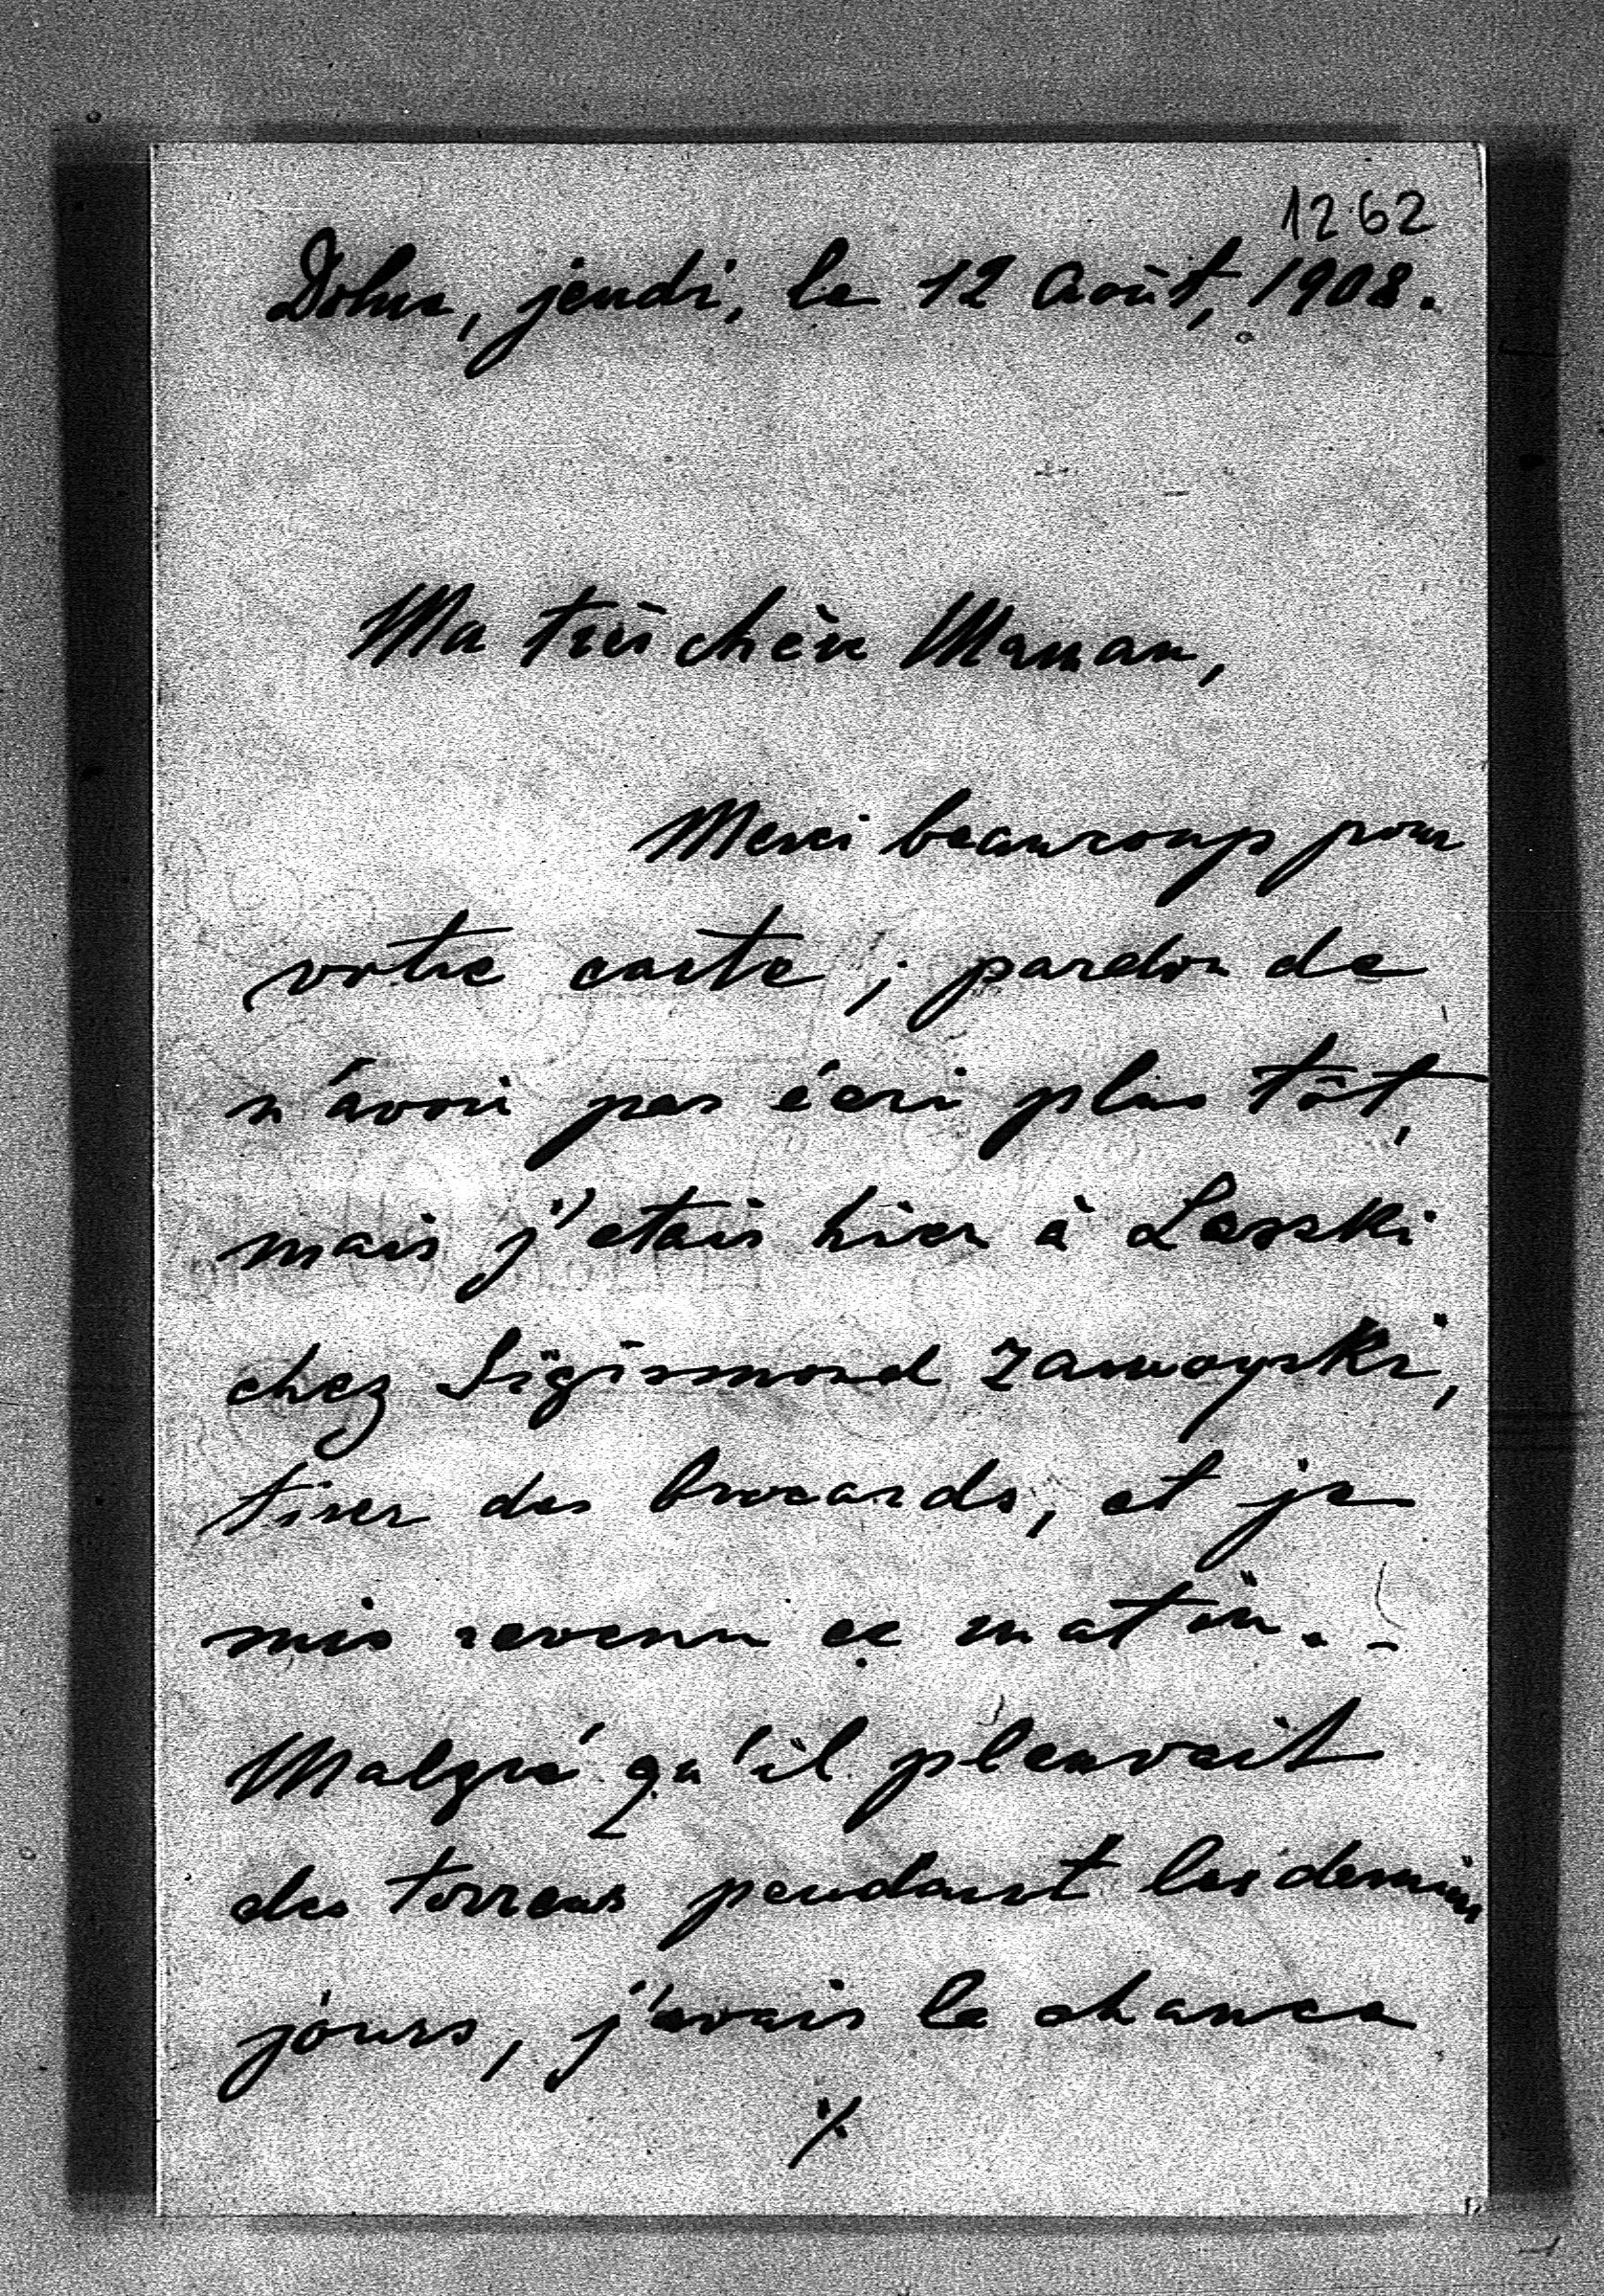 1262
Dolna, jeudi, le 12 Août, 1908.
Ma très chère Maman,
Merci beaucoup pour
votre carte ; pardon de
n'avoir pas écri plus tôt,
mais j'etais hier à Laski
chez Sigismond Zamoyski,
tirer des brocards, et je
suis revenu ce matin. -
Malgré qu'il pleuvait
des torrens pendant les derniers
jours, j'avais la chance
./.